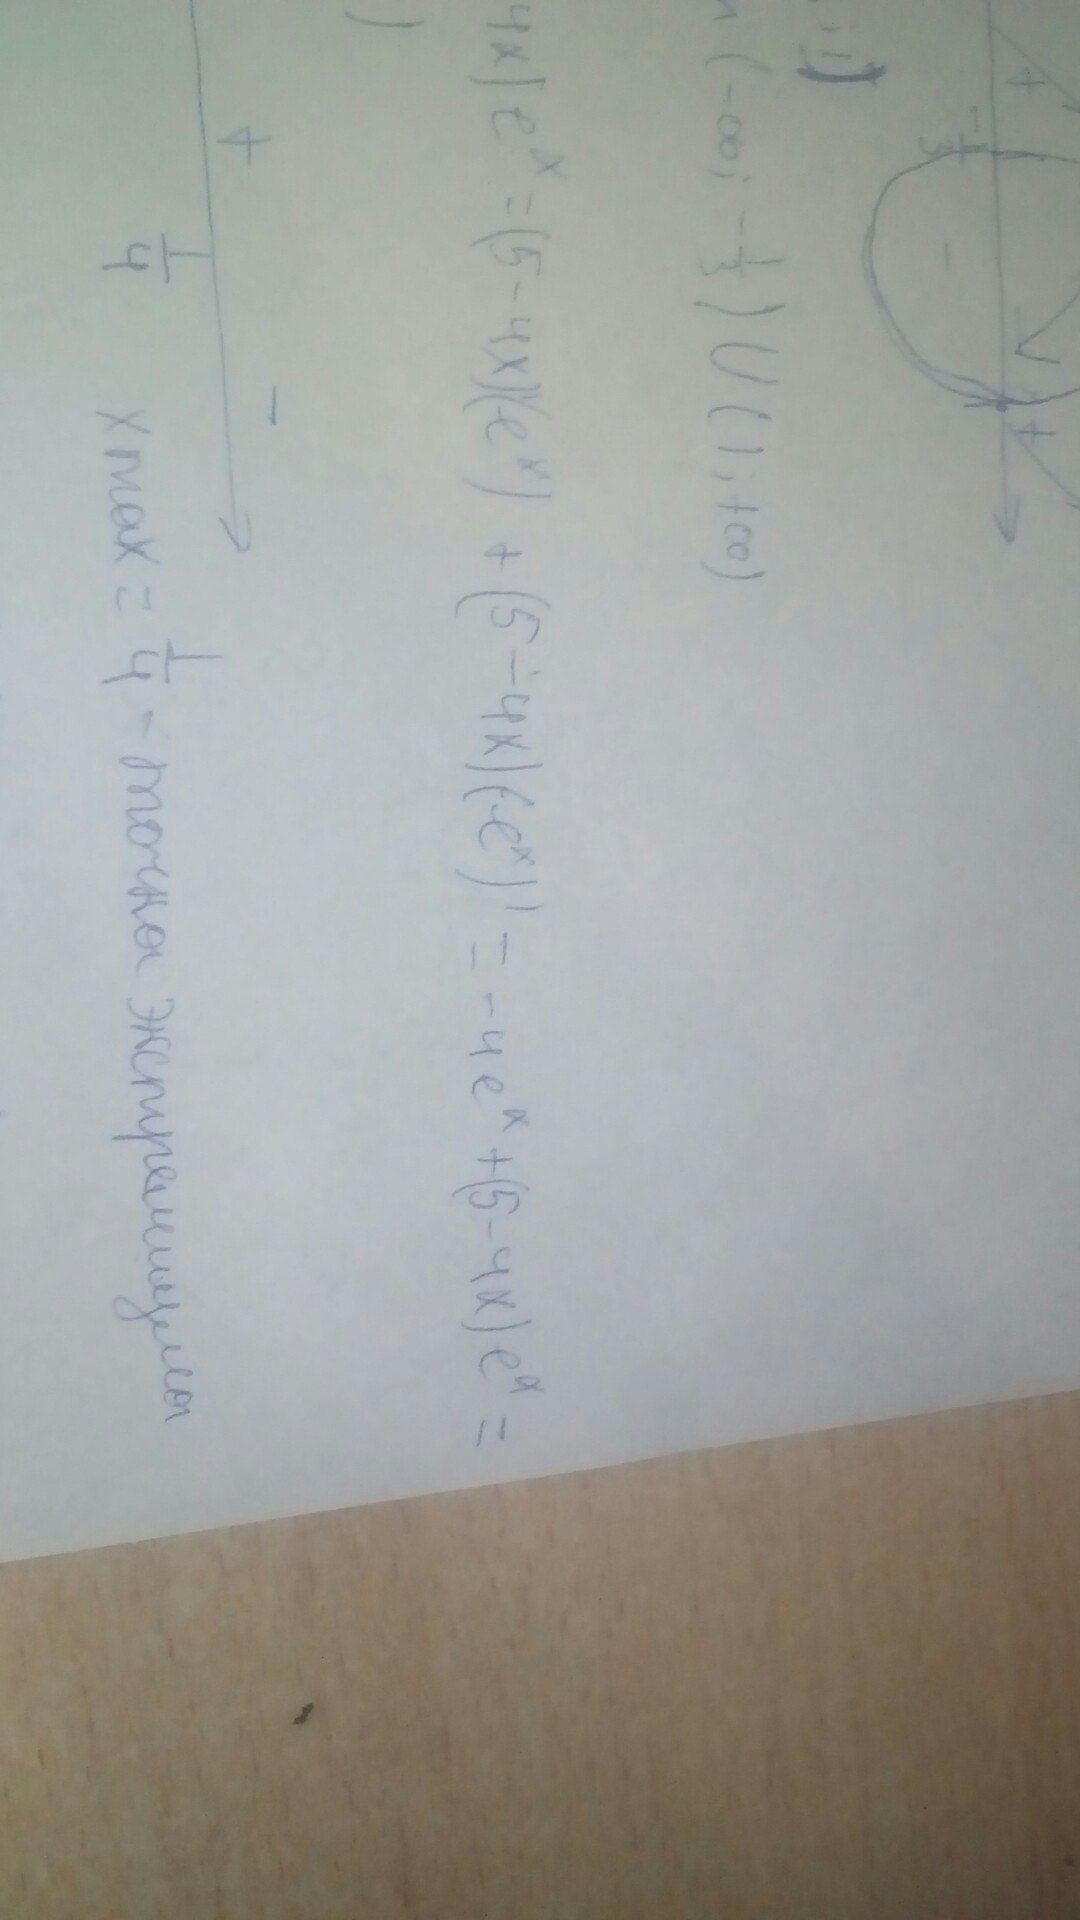 + - +
-1/3 1
; 1)
(-∞; -1/3) ∪ (1; +∞)
4x) e^x = (5 - 4x)'(e^x) + (5 - 4x)(e^x)' = -4e^x + (5 - 4x) e^x =
)
+ -
1/4 xmax = 1/4 - точка экстремума